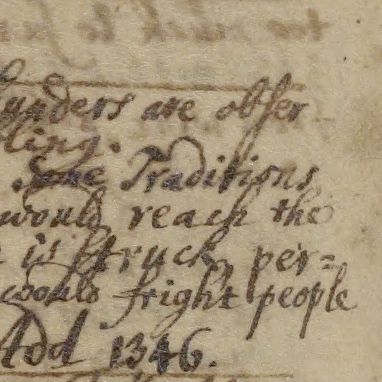 are obser
ling.
Some Traditions
would reach the
is struck, per=
would fright people
Add 1346.